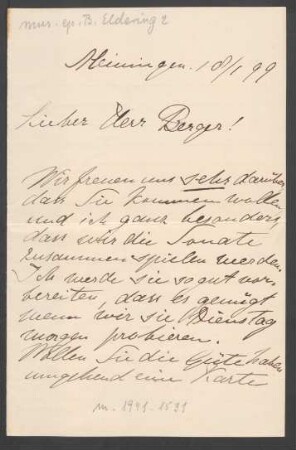 mus. ep. B. Eldering 2
Meiningen. 18/1 99
Lieber Herr Berger!
Wir freuen uns sehr darüber
dass Sie kommen wollen
und ich ganz besonders,
dass wir die Sonate
zusammen spielen werden.
Ich werde sie so gut vor-
bereiten, dass es genügt
wenn wir sie Dienstag
morgen probieren.
Wollen Sie die Güte haben
umgehend eine Karte
m. 1941-1591